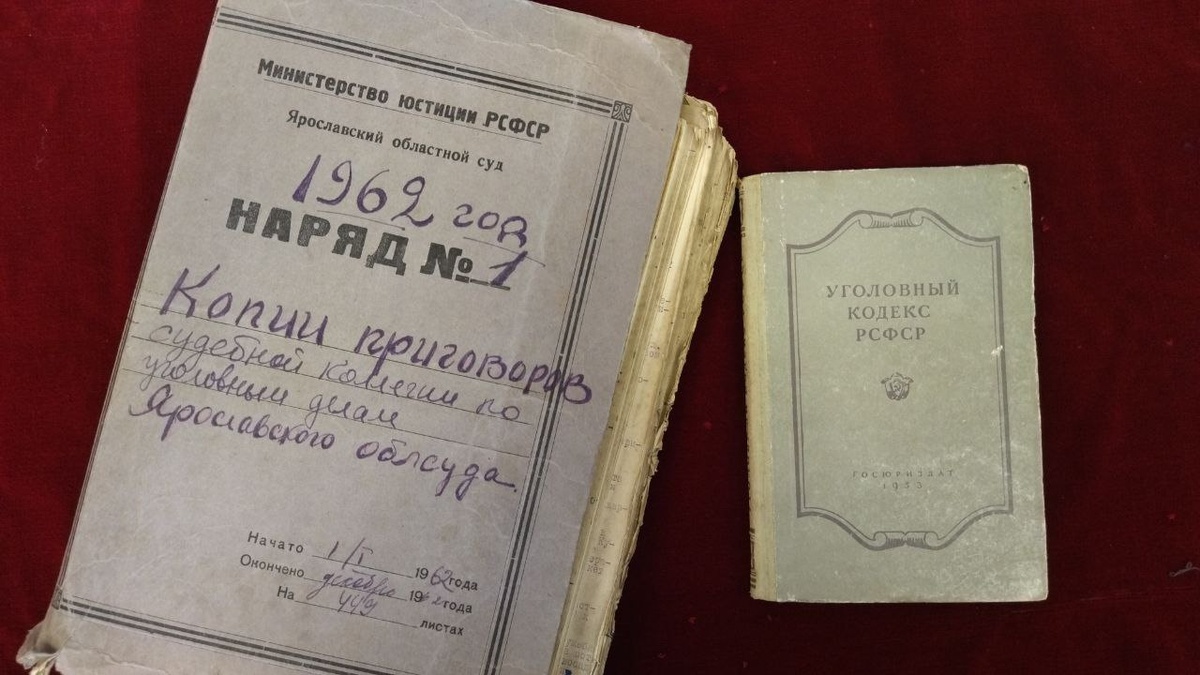 Министерство юстиции РСФСР
Ярославский областной суд
1962 год
НАРЯД № 1
Копии приговоров
судебной колегии по
уголовным делам
Ярославского облсуда.
Начато 1/I 1962 года
Окончено декабрь 1962 года
На 449 листах
УГОЛОВНЫЙ
КОДЕКС
РСФСР
ГОСЮРИЗДАТ
1953